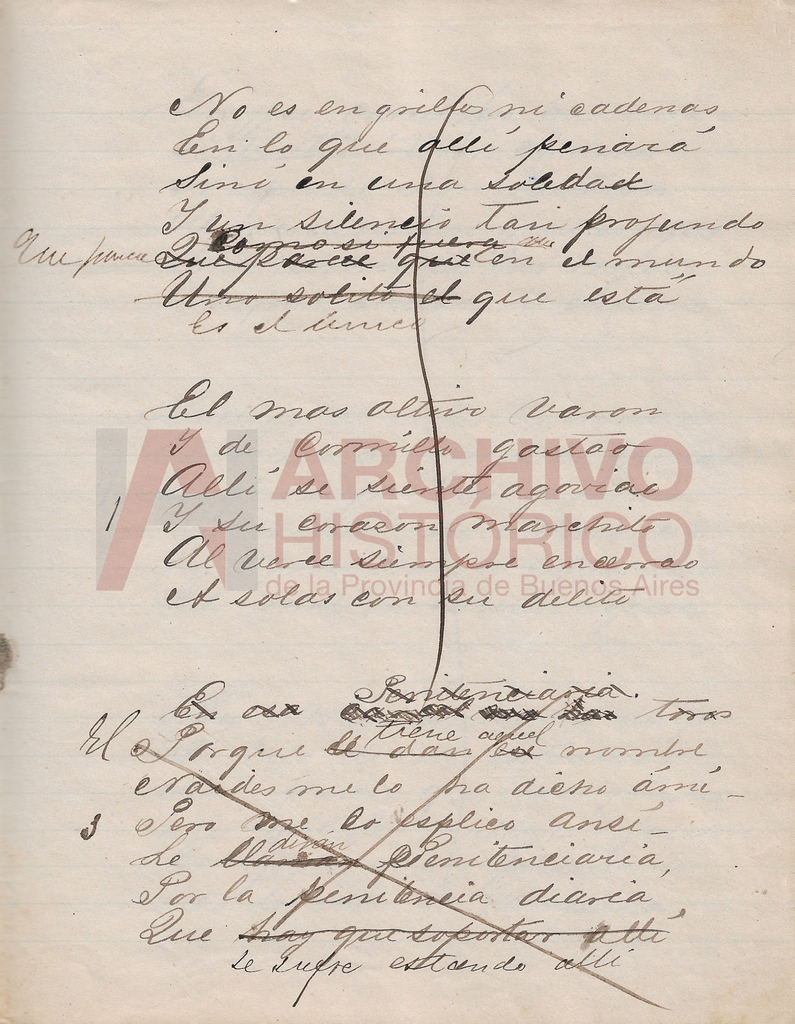 No es en grillos ni cadenas
En lo que allí penará
Sinó en una soledad
Y un silencio tan projundo
Como si fuera
Que parece Que parece que en el mundo
Uno solito el que está
Es el único
El mas altivo varon
Y de cormillo gastao
Allí se siente agoviao
1 Y su corazon marchito
Al verse siempre encerrao
A solas con su delito
Penitenciaria.
En esa toros
tiene aquel
El Porque le dan ese nombre
Naides me lo ha dicho ámí_
3 Pero me lo esplico ansí_
dirán
Le llaman Penitenciaria,
Por la penitencia diaria
Que hay que soportar allí
se sufre estando allí
ARCHIVO
HISTÓRICO
de la Provincia de Buenos Aires